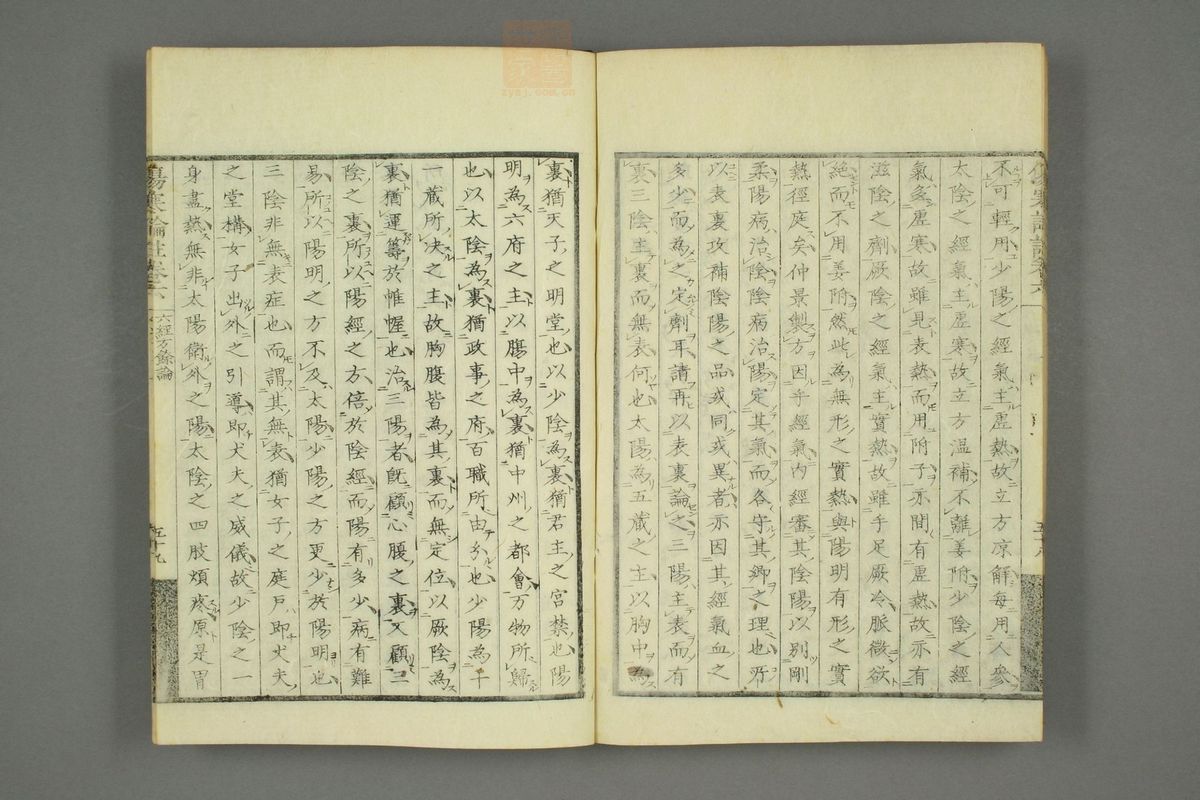 不可輕用少陽之經氣主虛熱故立方凉解每用人參
太陰之經氣主虛寒故立方溫補不離姜附少陰之經
氣多虛寒故雖見表熱而用附子亦間有虛熱故亦有
滋陰之劑厥陰之經氣主實熱故雖手足厥冷脈微欲
絕而不用姜附然此為無形之實熱與陽明有形之實
熱徑庭矣仲景製方因乎經氣內經審其陰陽以別剛
柔陽病治陰陰病治陽定其氣而各守其鄉之理也所
以表裏攻補陰陽之品或同或異者亦因其經氣血之
多少而為之定劑耳請再以表裏論之三陽主表而有
裏三陰主裏而無表何也太陽為五藏之主以胸中為
裏猶天子之明堂也以少陰為裏猶君主之宮禁也陽
明為六府之主以腸中為裏猶中州之都會万物所歸
也以太陰為裏猶政事之府百職所由分也少陽為十
一藏所决之主故胸腹皆為其裏而無定位以厥陰為
裏猶運籌於帷幄也治三陽者既顧心腹之裏又顧三
陰之裏所以陽經之方倍於陰經而陽有多少病有難
易所以陽明之方不及太陽少陽之方更少於陽明也
三陰非無表症也而謂其無表猶女子之庭戶即丈夫
之堂構女子出外之引導即丈夫之威儀故少陰之一
身盡熱無非太陽衛外之陽太陰之四肢煩疼原是胃
傷寒論註卷六
六經方餘論
五十九